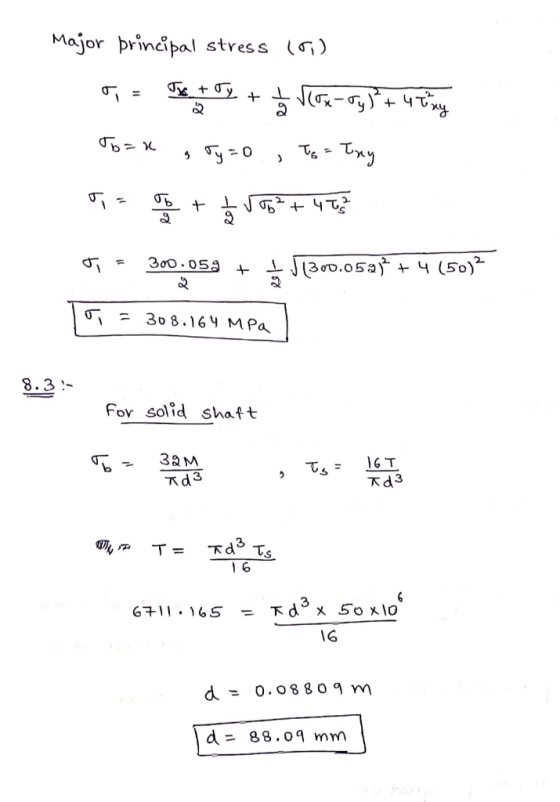 Major principal stress (σ₁)
σ₁ = (σx + σy)/2 + 1/2 √((σx-σy)² + 4τ²xy)
σb = x , σy = 0 , τs = τxy
σ₁ = σb/2 + 1/2 √(σb² + 4τs²)
σ₁ = 300.052/2 + 1/2 √((300.052)² + 4 (50)²)
σ₁ = 308.164 MPa
8.3 :-
For solid shaft
σb = 32M/πd³ , τs = 16T/πd³
T = πd³ τs/16
6711.165 = πd³ x 50 x10⁶/16
d = 0.08809 m
d = 88.09 mm